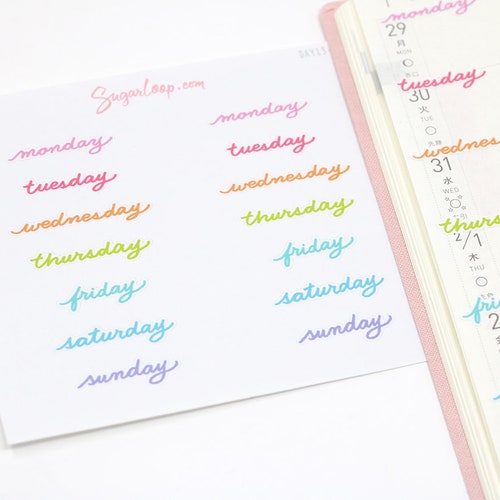 DAY13
Sugarloop.com
monday monday
tuesday tuesday
wednesday wednesday
thursday thursday
friday friday
saturday saturday
sunday sunday
monday
29
月
MON
tuesday
30
火
TUE
先勝
wednes
31
水
WED
thursd
2/1
木
THU
frid
2